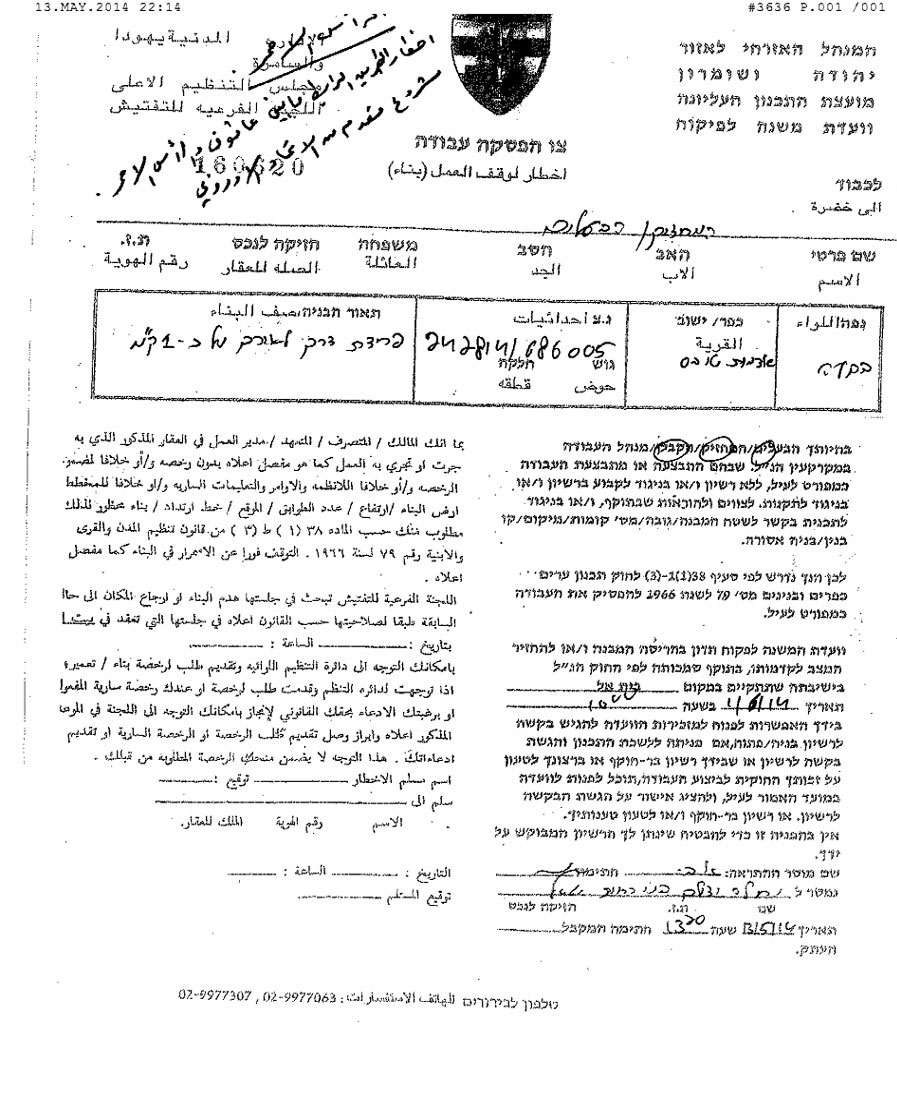 13.MAY.2014 22:14
#3636 P.001 /001
המנהל האזרחי לאזור
יהודה ושומרון
מועצת התכנון העליונה
וועדת משנה לפיקוח
الإدارة المدنية يهودا
والسامرة
مجلس التنظيم الاعلى
اللجنة الفرعيه للتفتيش
160620
צו הפסקה עבודה
اخطار لوقف العمل (بناء)
לכבוד
الى حضرة
המחזיק / הבעלים
שם פרטי האב הסב משפחה חזיקה לנכס ת.ז.
الاسم الاب الجد العائلة الصلة للعقار رقم الهوية
נפה اللواء
בקעה
כפר/ ישוב
القرية
אדמות טובס
נ.צ احداثيات
242814/686005
גוש חלקה
حوض قطعه
תאור הבניה وصف البناء
פריצת דרך לאורך של כ-1 ק"מ
בהיותך הבעלים/המחזיק/הקבלן/מנהל העבודה
במקרקעין הנ"ל, שבהם התבצעה או מתבצעת העבודה
כמפורט לעיל, ללא רשיון ו/או בניגוד לקבוע ברשיון ו/או
בניגוד לתקנות, לצווים ולהוראות שבתוקף, ו/או בניגוד
לתכנית בקשר לשטח המבנה/גובה/מס' קומות/מיקום/קו
בנין/בניה אסורה.
לכן הנך נדרש לפי סעיף 38(1)-1(3) לחוק תכנון ערים
כפרים ובנינים מס' 79 לשנת 1966 להפסיק את העבודה
כמפורט לעיל.
וועדת המשנה לפקוח תדון בהריסת המבנה ו/או להחזיר
המצב לקדמותו, בתוקף סמכותה לפי החוק הנ"ל
בישיבתה שתתקיים במקום בית אל
תאריך 1/6/14 בשעה 10 00
בידך האפשרות לפנות למזכירות הוועדה להגיש בקשה
לרשיון בניה/פתוח, אם פניתה ללשכת התכנון והגשת
בקשה לרשיון או שבידך רשיון בר-חוקף או ברצונך לטעון
על זכותך החוקית לביצוע העבודה, תוכל לפנות לוועדה
במועד האמור לעיל, ולהציג אישור על הגשת הבקשה
לרשיון, או רשיון בר-תוקף ו/או לטעון טענותיך.
אין בהפניה זו כדי להבטיח שינתן לך הרשיון המבוקש על
ידך.
שם מוסר ההתראה: חתימה
נמסר ל
שם ת.ז. חזיקה לנכס
תאריך 13/5/14 שעה 13 20 חתימה המקבל
העתק.
بما انك المالك / المتصرف / المتعهد / مدير العمل في العقار المذكور الذي به
جرت او تجري به العمل كما هو مفصل اعلاه بدون رخصه و/أو خلافا لمضمو
الرخصه و/أو خلافا للانظمه والاوامر والتعليمات الساريه و/او خلافا للمخطط
ارض البناء /ارتفاع / عدد الطوابق / الموقع / خط ارتداد / بناء محظور لذلك
مطلوب منك حسب الماده ٣٨ (١) ط (٣) من قانون تنظيم المدن والقرى
والابنية رقم ٧٩ لسنة ١٩٦٦ . التوقف فورا عن الاستمرار في البناء كما مفصل
اعلاه .
اللجنة الفرعية للتفتيش تبحث في جلستها هدم البناء او ارجاع المكان الى حاا
السابقة طبقا لصلاحيتها حسب القانون اعلاه في جلستها التي تعقد في
بتاريخ : الساعة :
بامكانك التوجه الى دائرة التنظيم اللوائيه وتقديم طلب لرخصة بناء / تعميره
اذا توجهت لدائره التنظم وقدمت طلب لرخصة او عندك رخصة سارية المفعوا
او برغبتك الادعاء بحقك القانوني لإنجاز بامكانك التوجه الى اللجنة في الموعا
المذكور اعلاه وابراز وصل تقديم طلب الرخصة او الرخصة السارية او تقديم
ادعاءاتك . هذا التوجه لا يضمن منحك الرخصة المطلوبه من قبلك .
اسم مسلم الاخطار توقيع :
سلم الى
الاسم رقم الهوية الملك للعقار.
التاريخ : الساعة :
توقيع المستلم
טלפון לבירורים للهاتف الاستفسارات : 02-9977063 , 02-9977307